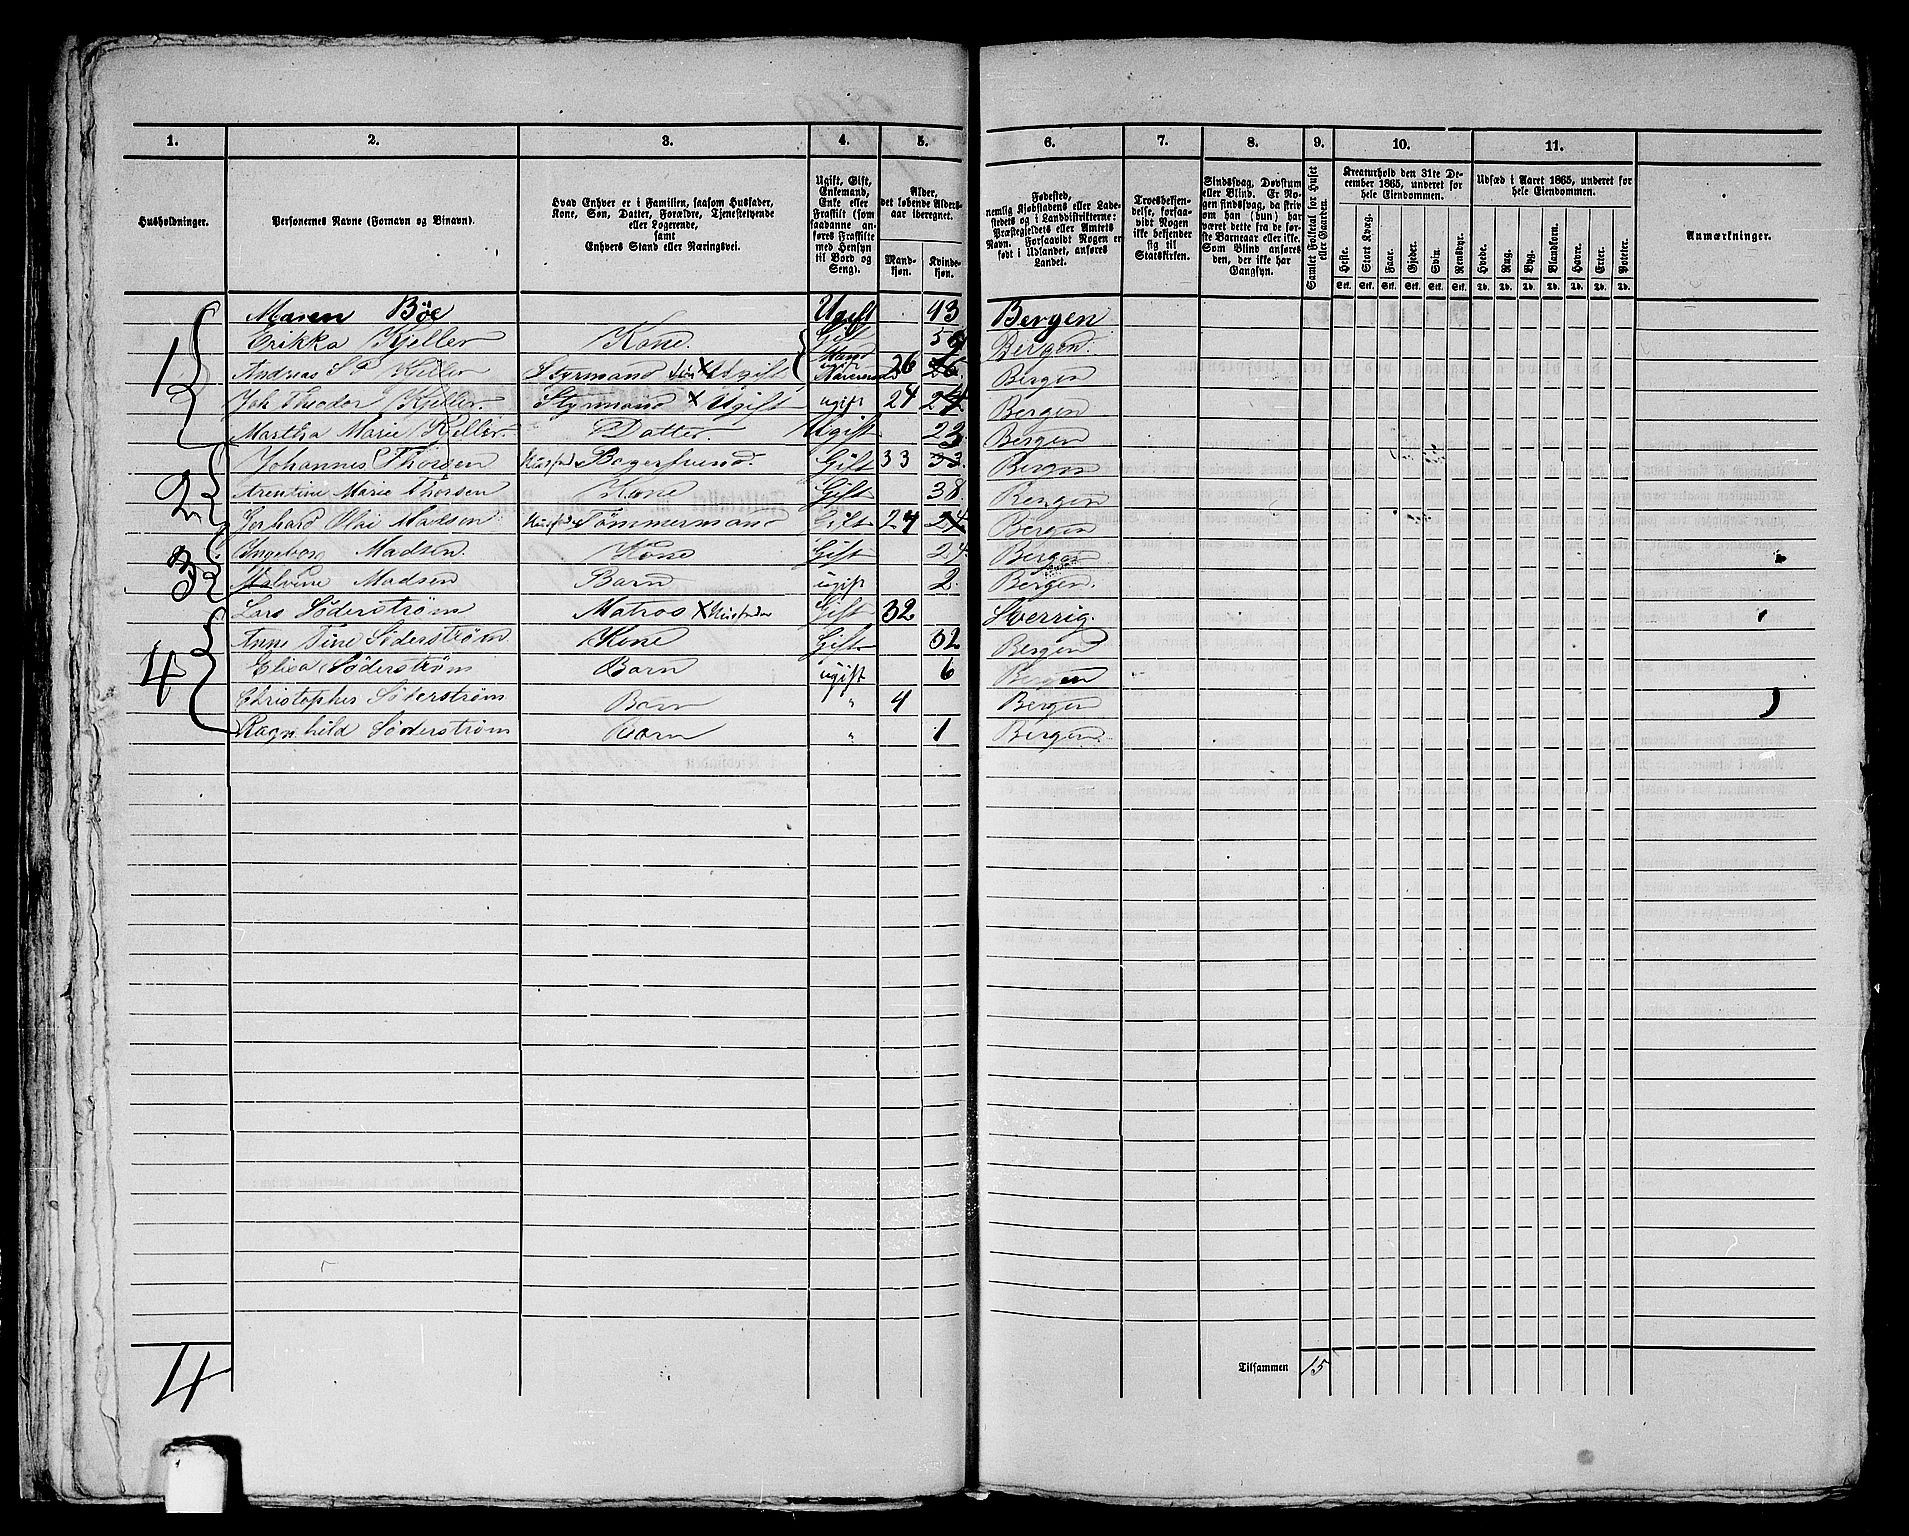 1. 2. 3. 4. 5. 6. 7. 8. 9. 10. 11.
Husholdninger.
Personernes Navne (Fornavn og Binavn).
Hvad Enhver er i Familien, saasom Husfader,
Kone, Søn, Datter, Forældre, Tjenestetyende
eller Logerende,
samt
Enhvers Stand eller Næringsvei.
Ugift, Gift,
Enkemand,
Enke eller
Fraskilt (som
saadanne an-
føres Fraskilte
med Hensyn
til Bord og
Seng).
Alder,
det løbende Alders-
aar iberegnet.
Mand-
kjøn.
Kvinde-
kjøn.
Fødested,
nemlig Kjøbstadens eller Lade-
stedets og i Landdistrikterne:
Præstegjeldets eller Amtets
Navn. Forsaavidt Nogen er
født i Udlandet, anføres
Landet.
Troesbekjen-
delse, forsaa-
vidt Nogen
ikke bekjender
sig til
Statskirken.
Sindssvag, Døvstum
eller Blind. Er No-
gen sindssvag, da skriv
om han (hun) har
været dette fra de før-
ste Barneaar eller ikke.
Som Blind anføres
den, der ikke har
Gangsyn.
Samlet Folketal for Huset
eller Gaarden.
Kreaturhold den 31te De-
cember 1865, underet for
hele Eiendommen.
Heste. Stort Kvæg. Faar. Gjeder. Svin. Rensdyr.
Stk. Stk. Stk. Stk. Stk. Stk.
Udsæd i Aaret 1865, underet for
hele Eiendommen.
Hvede. Rug. Byg. Blandkorn. Havre. Erter. Poteter.
Td. Td. Td. Td. Td. Td. Td.
Anmærkninger.
Maren Bøe Ugift 43 Bergen
1 Erikka Kjeller Kone. Gift Bergen.
Andreas Kjeller Styrmand Søn X Ugift ugift 26 26 Bergen
Joh Theodor Kjeller. Styrmand X Ugift ugift 24 24 Bergen
Martha Marie Kjeller. Datter. Ugift 23 Bergen
2 Johannes Thorsen Husfader Bagersvend. Gift 33 33. Bergen
Arentine Marie Thorsen Kone Gift 38. Bergen
3 Gerhard Olai Madsen Husfader Tømmermand Gift 24 Bergen
Ingebor Madsen. Kone Gift 24. Bergen
Malvine Madsen Barn ugift 2. Bergen.
4 Lars Söderström Matros X Husfader Gift 32 Sverrig.
Anne Tine Söderström. Kone Gift 32 Bergen
Elisa Söderström Barn ugift 6 Bergen
Christopher Söderström Barn " 4 Bergen
Ragnhild Söderström Barn " 1 Bergen.
4 Tilsammen 15